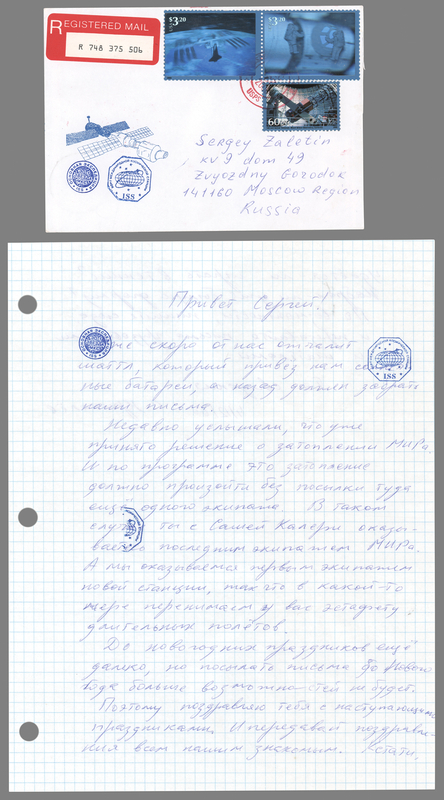 REGISTERED MAIL
R 748 375 506
$3.20
$3.20
60
Sergey Zaletin
kv 9 dom 49
Zvyozdny Gorodok
141160 Moscow Region
Russia
ISS
ISS
Привет Сергей!
же скоро от нас отчалит
шаттл, который привёз нам
ные батареи, а назад должен забрать
наши письма.
Недавно услышали, что уже
принято решение о затоплении МИРа.
И по программе это затопление
должно произойти без посылки туда
ещё одного экипажа. В таком
случае ты с Сашей Калери оказы-
ваетесь последним экипажем МИРа.
А мы оказываемся первым экипажем
новой станции, так что в какой-то
мере перенимаем у вас эстафету
длительных полётов.
До новогодних праздников ещё
далеко, но посылать письма до Нового
Года больше возможностей не будет.
Поэтому поздравляю тебя с наступающими
праздниками. И передавай поздравле-
ния всем нашим знакомым. Кстати,
ISS
ISS